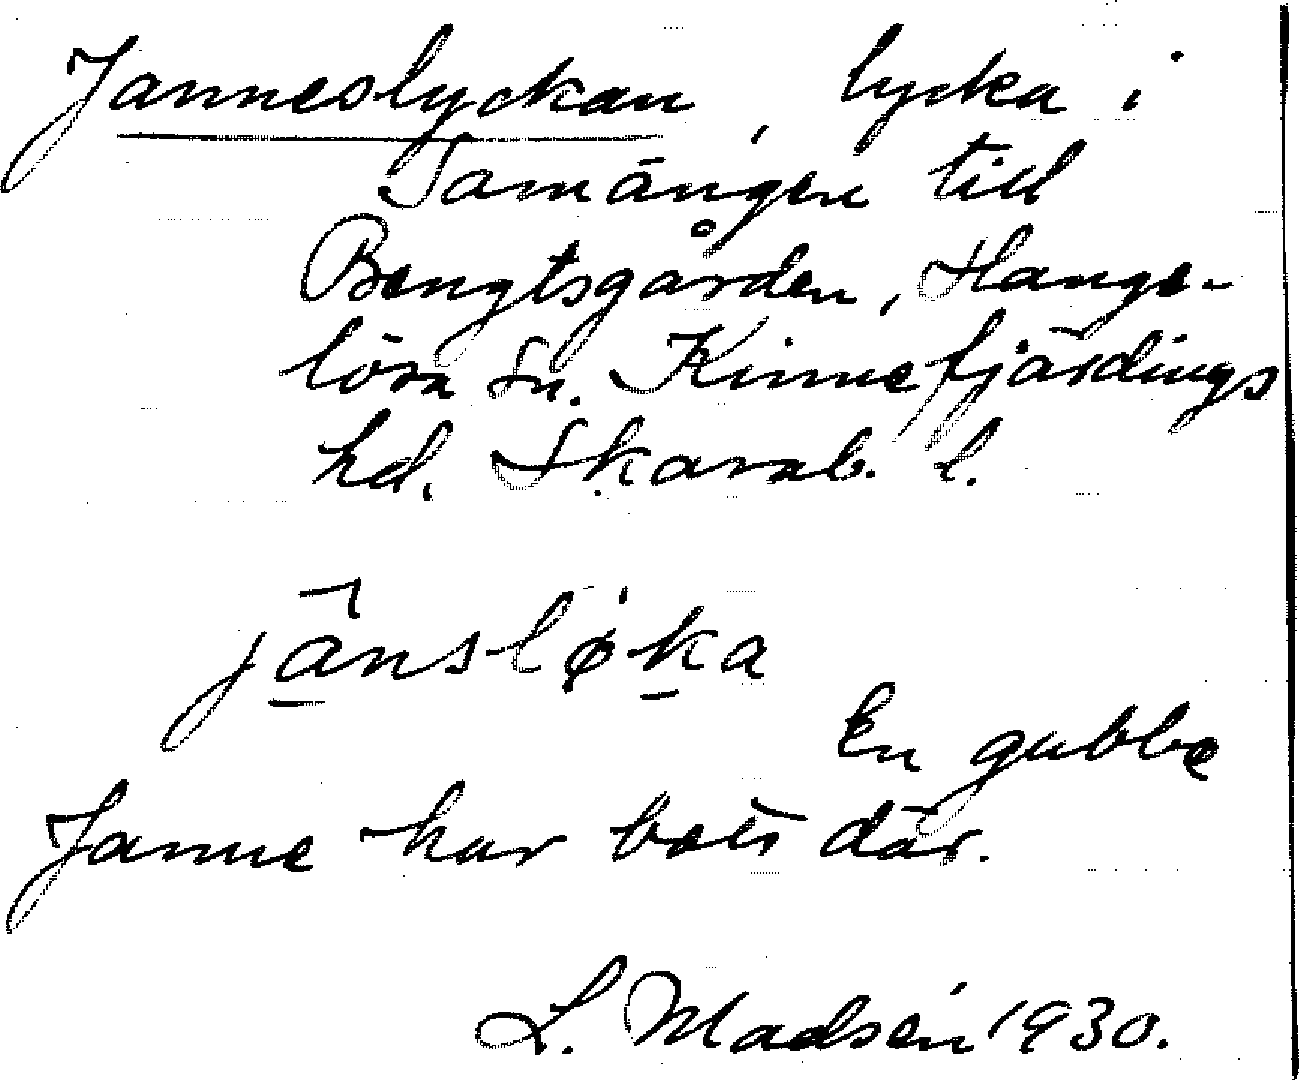 Janneslyckan, lycka i
Tamängen till
Bengtsgården, Hange-
lösa sn. Kinnefjärdings
hd. Skarab. l.
En gubbe
Janne har bott där.
L. Madsén 1930.